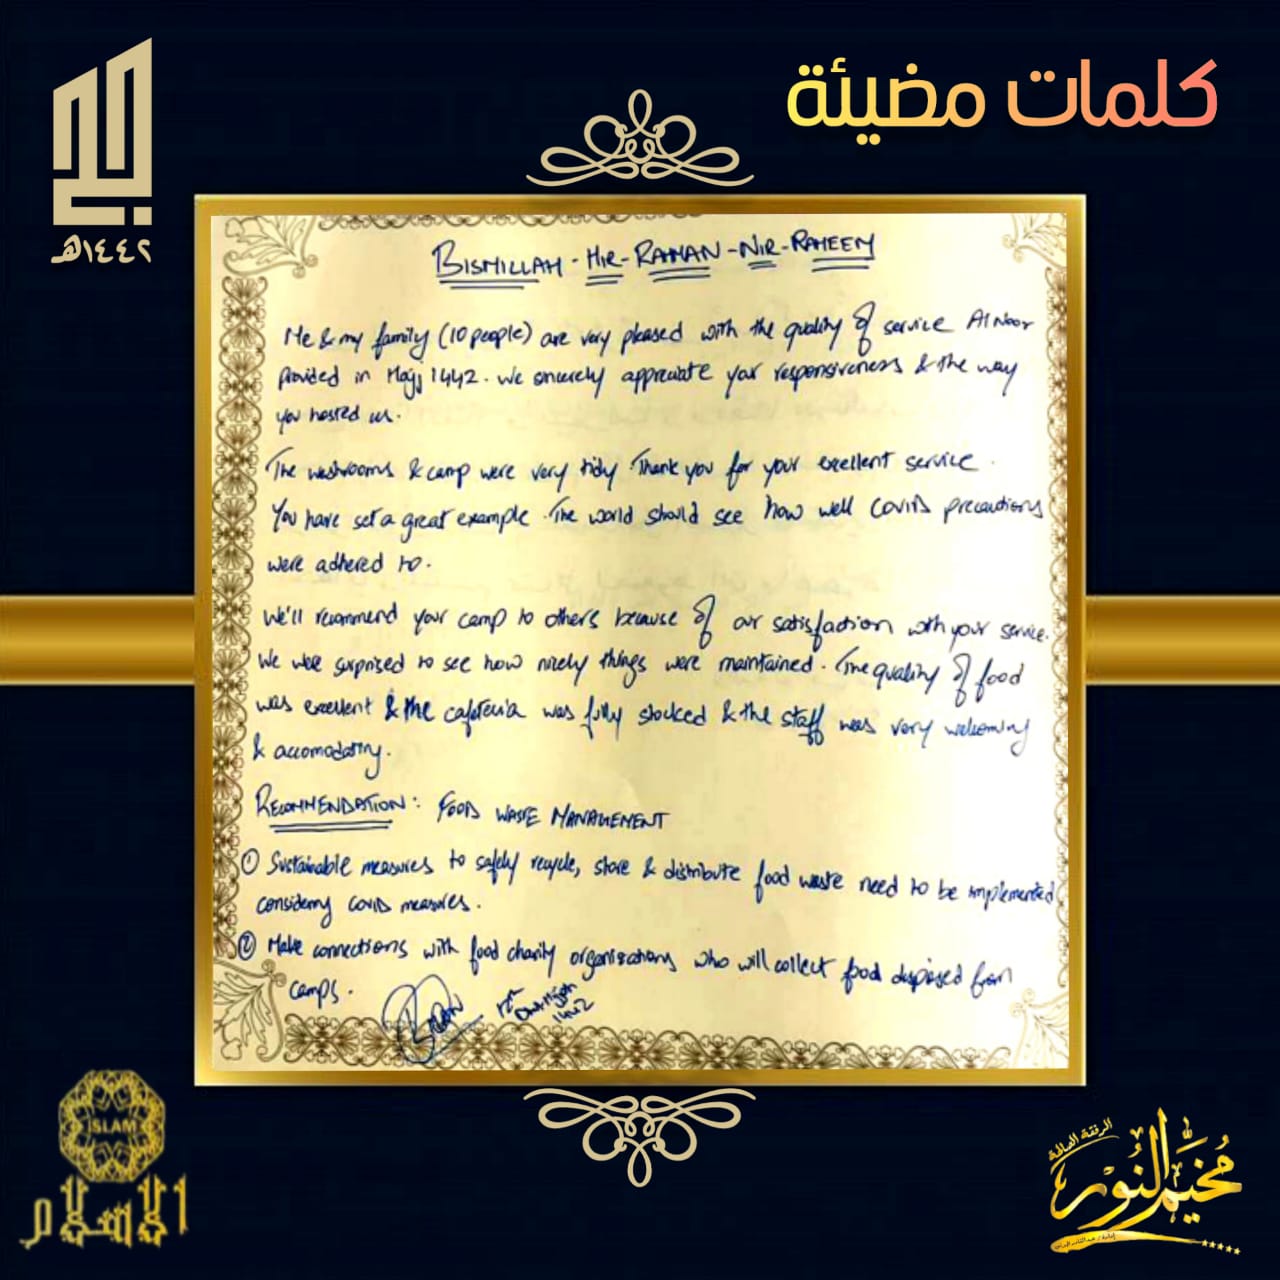 كلمات مضيئة
١٤٤٢هـ
BISMILLAH-HIR-RAHMAN-NIR-RAHEEM
Me & my family (10 people) are very pleased with the quality of service Al Noor
provided in Hajj 1442. We sincerely appreciate your responsiveness & the way
you hosted us.
The washrooms & camp were very tidy. Thank you for your excellent service.
You have set a great example. The world should see how well COVID precautions
were adhered to.
We'll recommend your camp to others because of our satisfaction with your service.
We were surprised to see how nicely things were maintained. The quality of food
was excellent & the cafeteria was fully stocked & the staff was very welcoming
& accomodating.
RECOMMENDATION: FOOD WASTE MANAGEMENT
① Sustainable measures to safely recycle, store & distribute food waste need to be implemented
considering COVID measures.
② Make connections with food charity organisations who will collect food disposed from
camps.
12th
Dhul Hijjah
1442
ISLAM
الاسلام
الرفقة الصالحة
مخيم النور